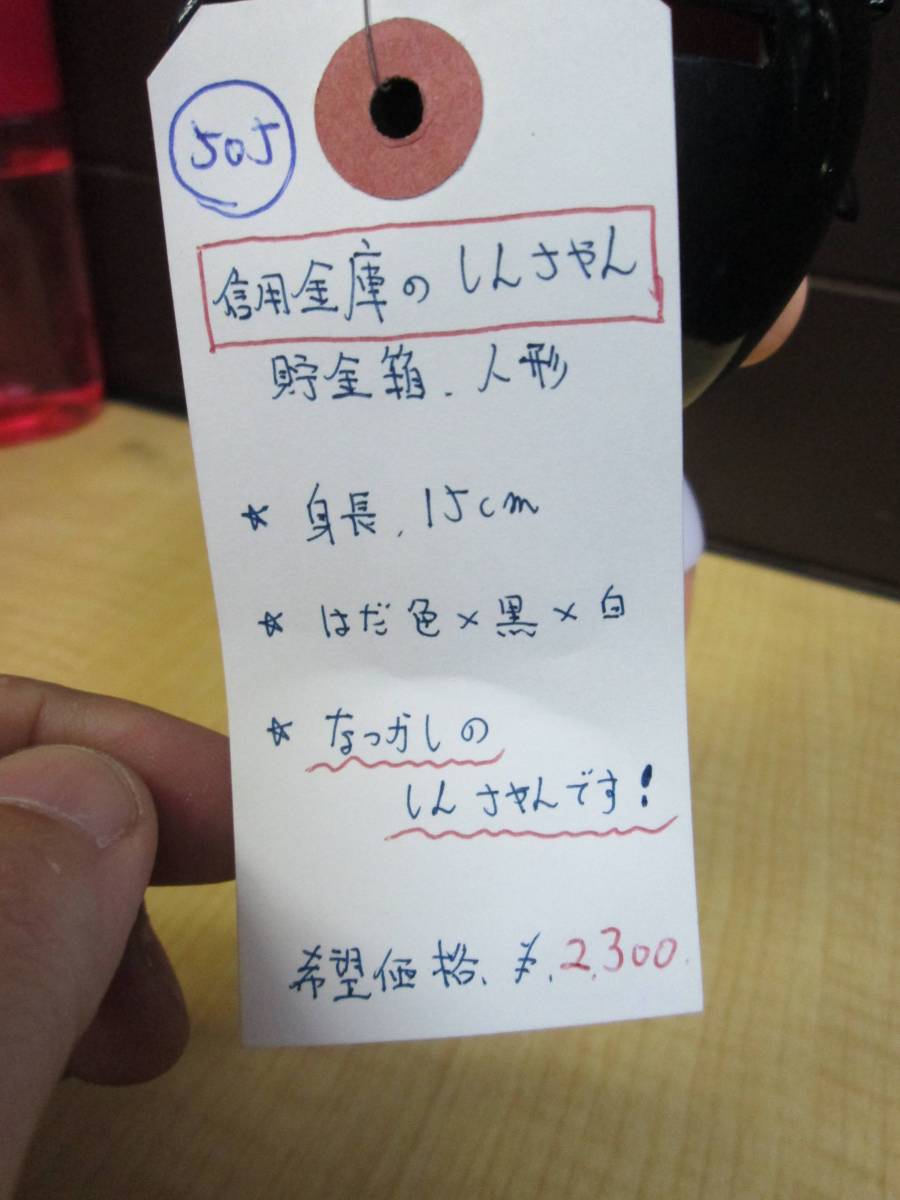 505
信用金庫の しんさやん
貯金箱. 人形
☆ 身長, 15cm
☆ はだ色×黒×白
☆ なつかしの
しんさやんです!
希望価格、¥, 2,300.